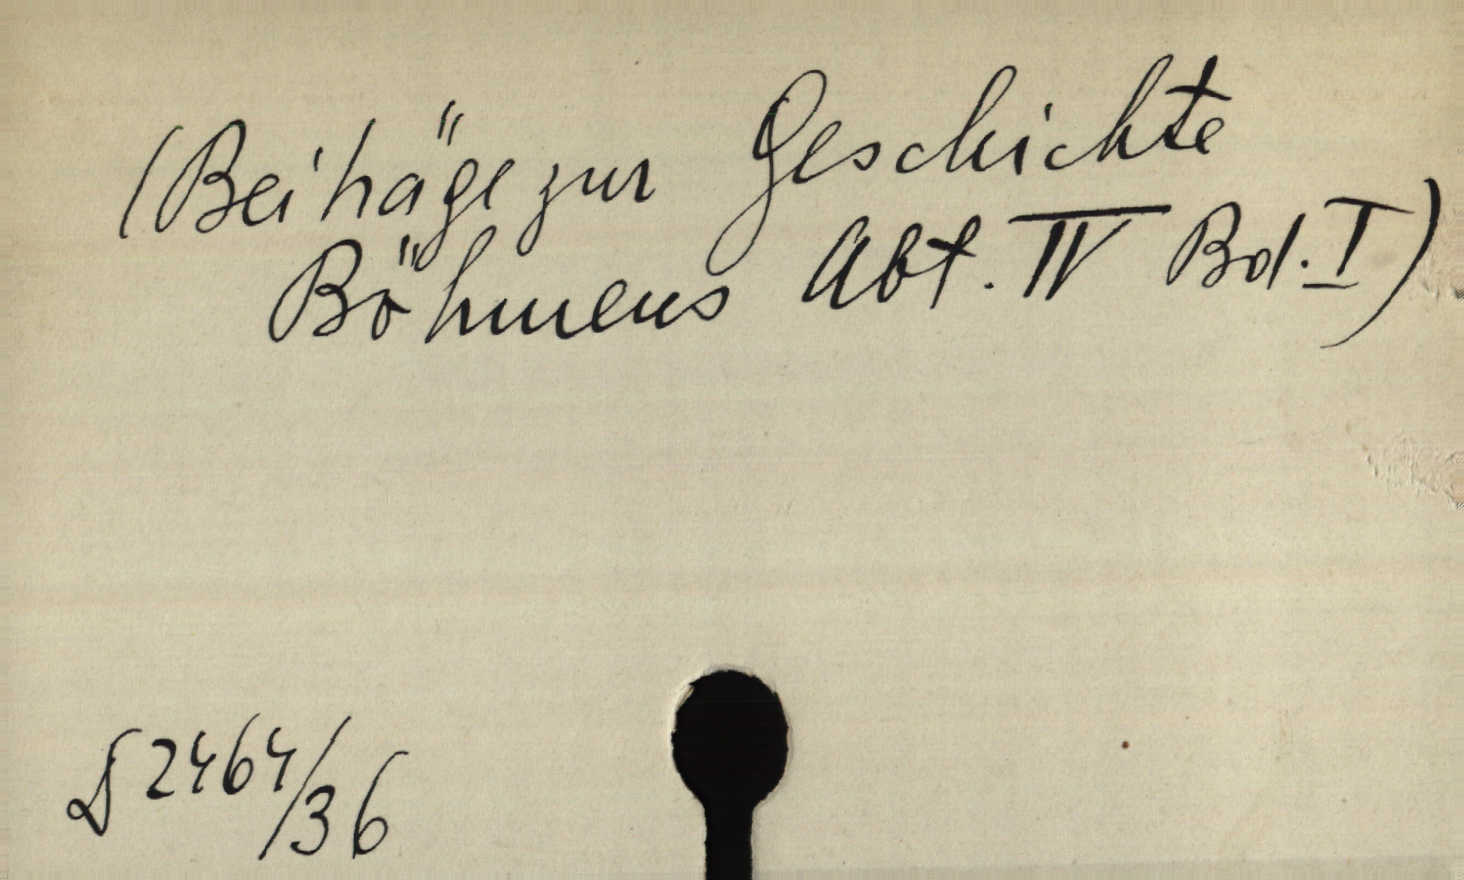 (Beiträge zur Geschichte
Böhmens Abt. IV Bd. I)
S 2464/36